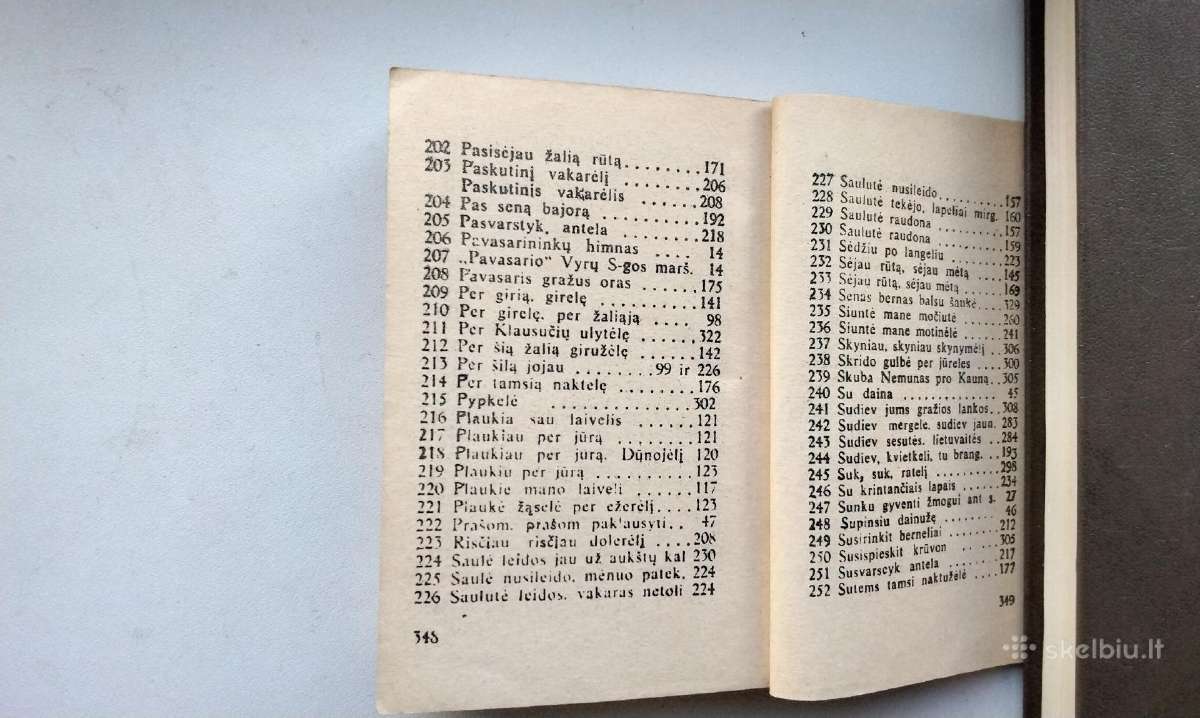 202 Pasisėjau žalią rūtą........171
203 Paskutinį vakarėlį ........206
Paskutinis vakarėlis ......208
204 Pas seną bajorą ..........192
205 Pasvarstyk, antela ........218
206 Pavasarininkų himnas .... 14
207 „Pavasario" Vyrų S-gos marš. 14
208 Pavasaris gražus oras ......175
209 Per girią, girelę ..........141
210 Per girelę, per žaliąją .... 98
211 Per Klausučių ulytėlę ......322
212 Per šią žalią giružėlę ......142
213 Per šilą jojau ........99 ir 226
214 Per tamsią naktelę ........176
215 Pypkelė ............302
216 Plaukia sau laivelis ......121
217 Plaukiau per jūrą ........121
218 Plaukiau per jurą, Dūnojėlį 120
219 Plaukiu per jūrą ..........123
220 Plaukie mano laiveli ......117
221 Plaukė žąselė per ežerėlį....123
222 Prašom, prašom paklausyti.. 47
223 Risčiau risčiau dolerėlį ....208
224 Saulė leidos jau už aukštų kal 230
225 Saulė nusileido, mėnuo patek. 224
226 Saulutė leidos, vakaras netoli 224
348
227 Saulutė nusileido..........157
228 Saulutė tekėjo, lapeliai mirg. 160
229 Saulutė raudona ..........157
230 Saulutė raudona ..........159
231 Sėdžiu po langeliu ........223
232 Sėjau rūtą, sėjau mėtą ....145
233 Sėjau rūtą, sėjau mėtą....169
234 Senas bernas balsu šaukė..329
235 Siuntė mane močiutė ......260
236 Siuntė mane motinėlė ....241
237 Skyniau, skyniau skynymėlį ..306
238 Skrido gulbė per jūreles ....300
239 Skuba Nemunas pro Kauną..305
240 Su daina ............ 45
241 Sudiev jums gražios lankos..308
242 Sudiev mergelė, sudiev jaun. 283
243 Sudiev sesutės, lietuvaitės ..284
244 Sudiev, kvietkeli, tu brang. ..193
245 Suk, suk, ratelį ..........298
246 Su krintančiais lapais ......234
247 Sunku gyventi žmogui ant s. 27
248 Supinsiu dainužę ........ 46
249 Susirinkit berneliai ........212
250 Susispieskit krūvon ........305
251 Susvarscyk antela ........217
252 Sutems tamsi naktužėlė ....177
349
skelbiu.lt